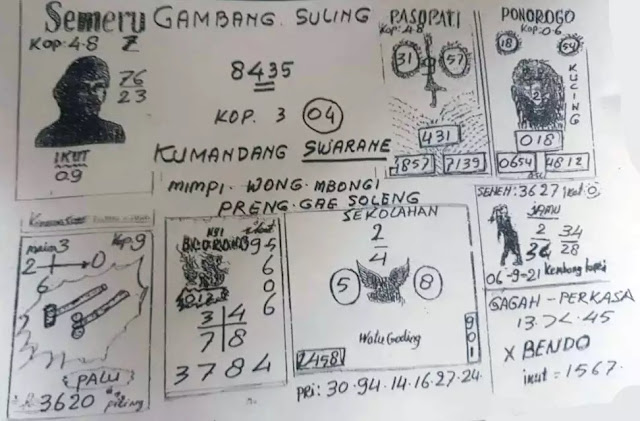 Semeru
KOP: 4-8
76
23
IKUT
09
GAMBANG. SULING
8435
KOP. 3 04
KUMANDANG SWARANE
MIMPI. WONG. MBONGI
PRENG. GAG SOLENG
PASOPATI
Kop: 4-8
31 57
431
4857 7139
PONOROGO
KOP: 06
18 54
KUCING
2
018
0654 4812
main 3 Kop. 9
2 0
6
8
PALU
3620 piling
NYI
95
6
0
6
3 4
7 8
3784
SEKOLAHAN
2
4
5 8
Watu Gading
901
2458
PRI: 30-94-14-16-27-24
SENEH: 3627 ikut 0
JAMU
2 34
34 28
06-9=21 Kembang kopi
GAGAH - PERKASA
13. >< .45
X BENDO
ikut = 1567.